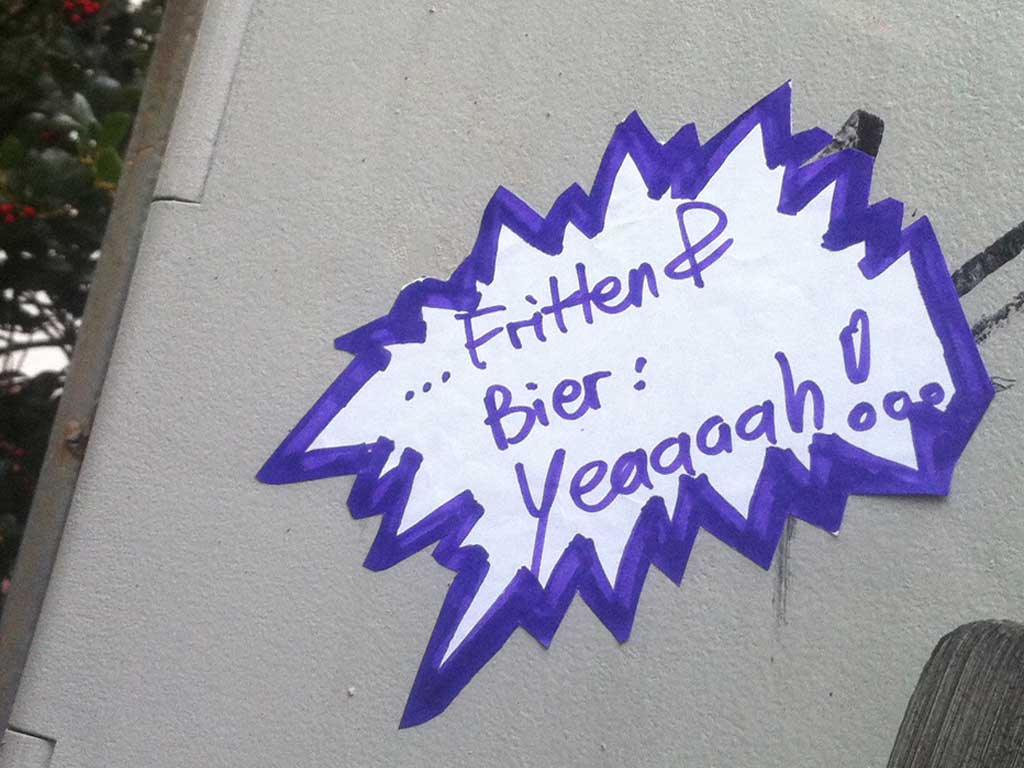 ...Fritten &
Bier:
Yeaaaah!...